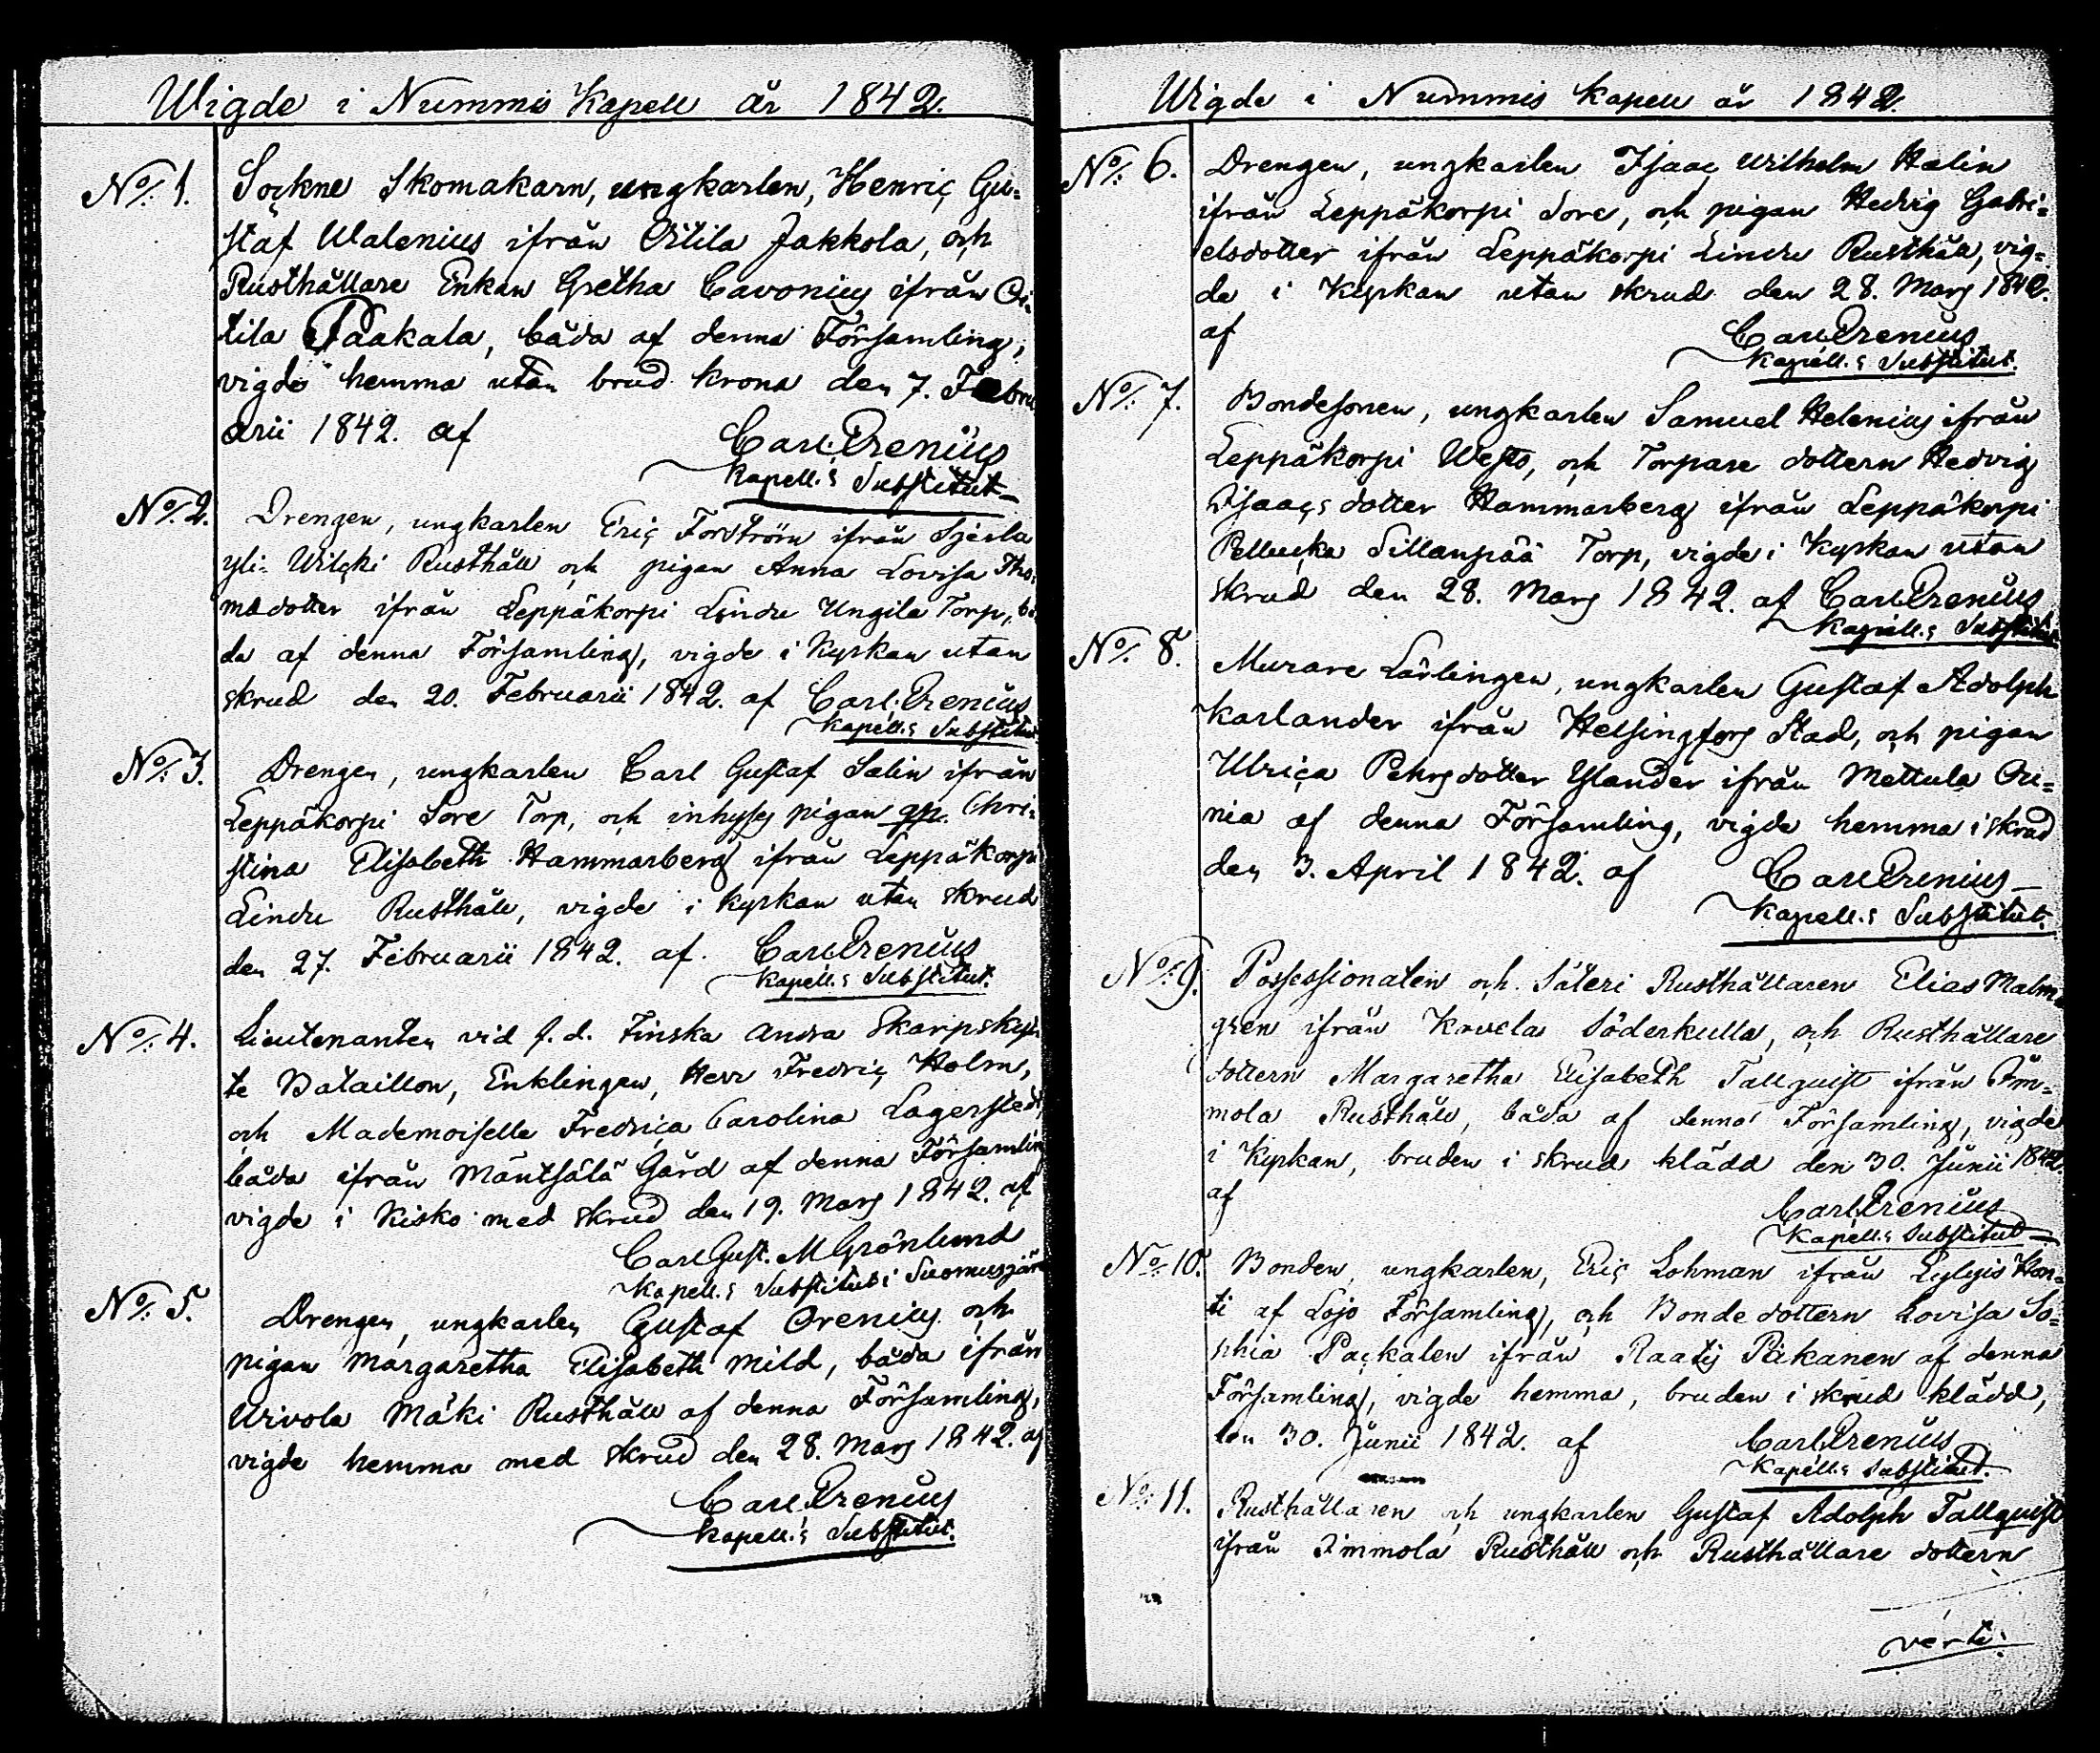 Wigde i Nummis Kapell år 1842.
No/: 1. Sockne Skomakarn, ungkarlen, Henric Gu-
staf Walenius ifrån Oitila Jakkola, och
Rusthållare Enkan Gretha Cavonius ifrån Oi-
tila Paakala, båda af denna Församling,
vigde hemma utan brud krona den 7. Febru
arii 1842. af Carl Prenius
Kapell:s Substitut
No/: 2. Drengen, ungkarlen Eric Forström ifrån Sjerla
yli-Wilcki Rusthåll och pigan Anna Lovisa Tho-
masdotter ifrån Leppäkorpi Lindu Ungila Torp, bå
da af denna Församling, vigde i Kyrkan utan
skrud den 20. Februarii 1842. af Carl Prenius
Kapell:s Substitut
No/: 3. Drengen, ungkarlen Carl Gustaf Salin ifrån
Leppäkorpi Sore Torp, och inhyses pigan qp. Chri-
stina Elisabeth Hammarberg ifrån Leppäkorpi
Lindu Rusthåll, vigde i Kyrkan utan skrud
den 27. Februarii 1842. af Carl Prenius
Kapell:s Substitut.
No/: 4. Lieutenanten vid f.d. Finska andra Skarpskyt
te Bataillon, Enklingen, Herr Fredric Holm,
och Mademoiselle Fredrica Carolina Lagerstedt,
båda ifrån Mäntsälä Gård af denna Församling
vigde i Kisko med skrud den 19. Mars 1842. af
Carl Gust. M Grönlund
Kapell:s Substitut i Suomusjär
No/: 5. Drengen, ungkarlen Gustaf Orenius och
pigan Margaretha Elisabeth Mild, båda ifrån
Wivola Mäki Rusthåll af denna Församling,
vigde hemma med skrud den 28. Mars 1842. af
Carl Prenius
Kapell:s Substitut.
Wigde i Nummis Kapell år 1842.
No/: 6. Drengen, ungkarlen Isaac Wilhelm Halin
ifrån Leppäkorpi Sore, och pigan Hedvig Gabri-
elsdotter ifrån Leppäkorpi Lindu Rusthåll, vig-
de i Kyrkan utan skrud den 28. Mars 1842.
af Carl Prenius
Kapell:s Substitut.
No/: 7. Bondesonen, ungkarlen Samuel Helenius ifrån
Leppäkorpi Westo, och Torpare dottern Hedvig
Isaacs dotter Hammarberg ifrån Leppäkorpi
Pellucka Sillanpää Torp, vigde i Kyrkan utan
skrud den 28. Mars 1842. af Carl Prenius
Kapell:s Substitut
No/: 8. Murare Lärlingen, ungkarlen Gustaf Adolph
Karlander ifrån Helsingfors Stad, och pigan
Ulrica Pehrsdotter Ylander ifrån Mettula Ou-
nia af denna Församling, vigde hemma i skrud
den 3. April 1842. af Carl Prenius
Kapell:s Substitut.
No/: 9. Possessionaten och Säteri Rusthållaren Elias Malm-
gren ifrån Kovela Söderkulla, och Rusthållare
dottern Margaretha Elisabeth Tallquist ifrån Im-
mola Rusthåll, båda af denna Församling, vigde
i Kyrkan, bruden i skrud klädd den 30. Junii 1842.
af Carl Prenius
Kapell:s Substitut
No/: 10. Bonden, ungkarlen, Eric Lohman ifrån Lylyis Hon-
ti af Lojo Församling, och Bonde dottern Lovisa So-
phia Packalen ifrån Raatis Päkanen af denna
Församling, vigde hemma, bruden i skrud klädd,
den 30. Junii 1842. af Carl Prenius
Kapell:s Substitut.
No/: 11. Rusthållaren och ungkarlen Gustaf Adolph Tallquist
ifrån Immola Rusthåll och Rusthållare dottern
verte.